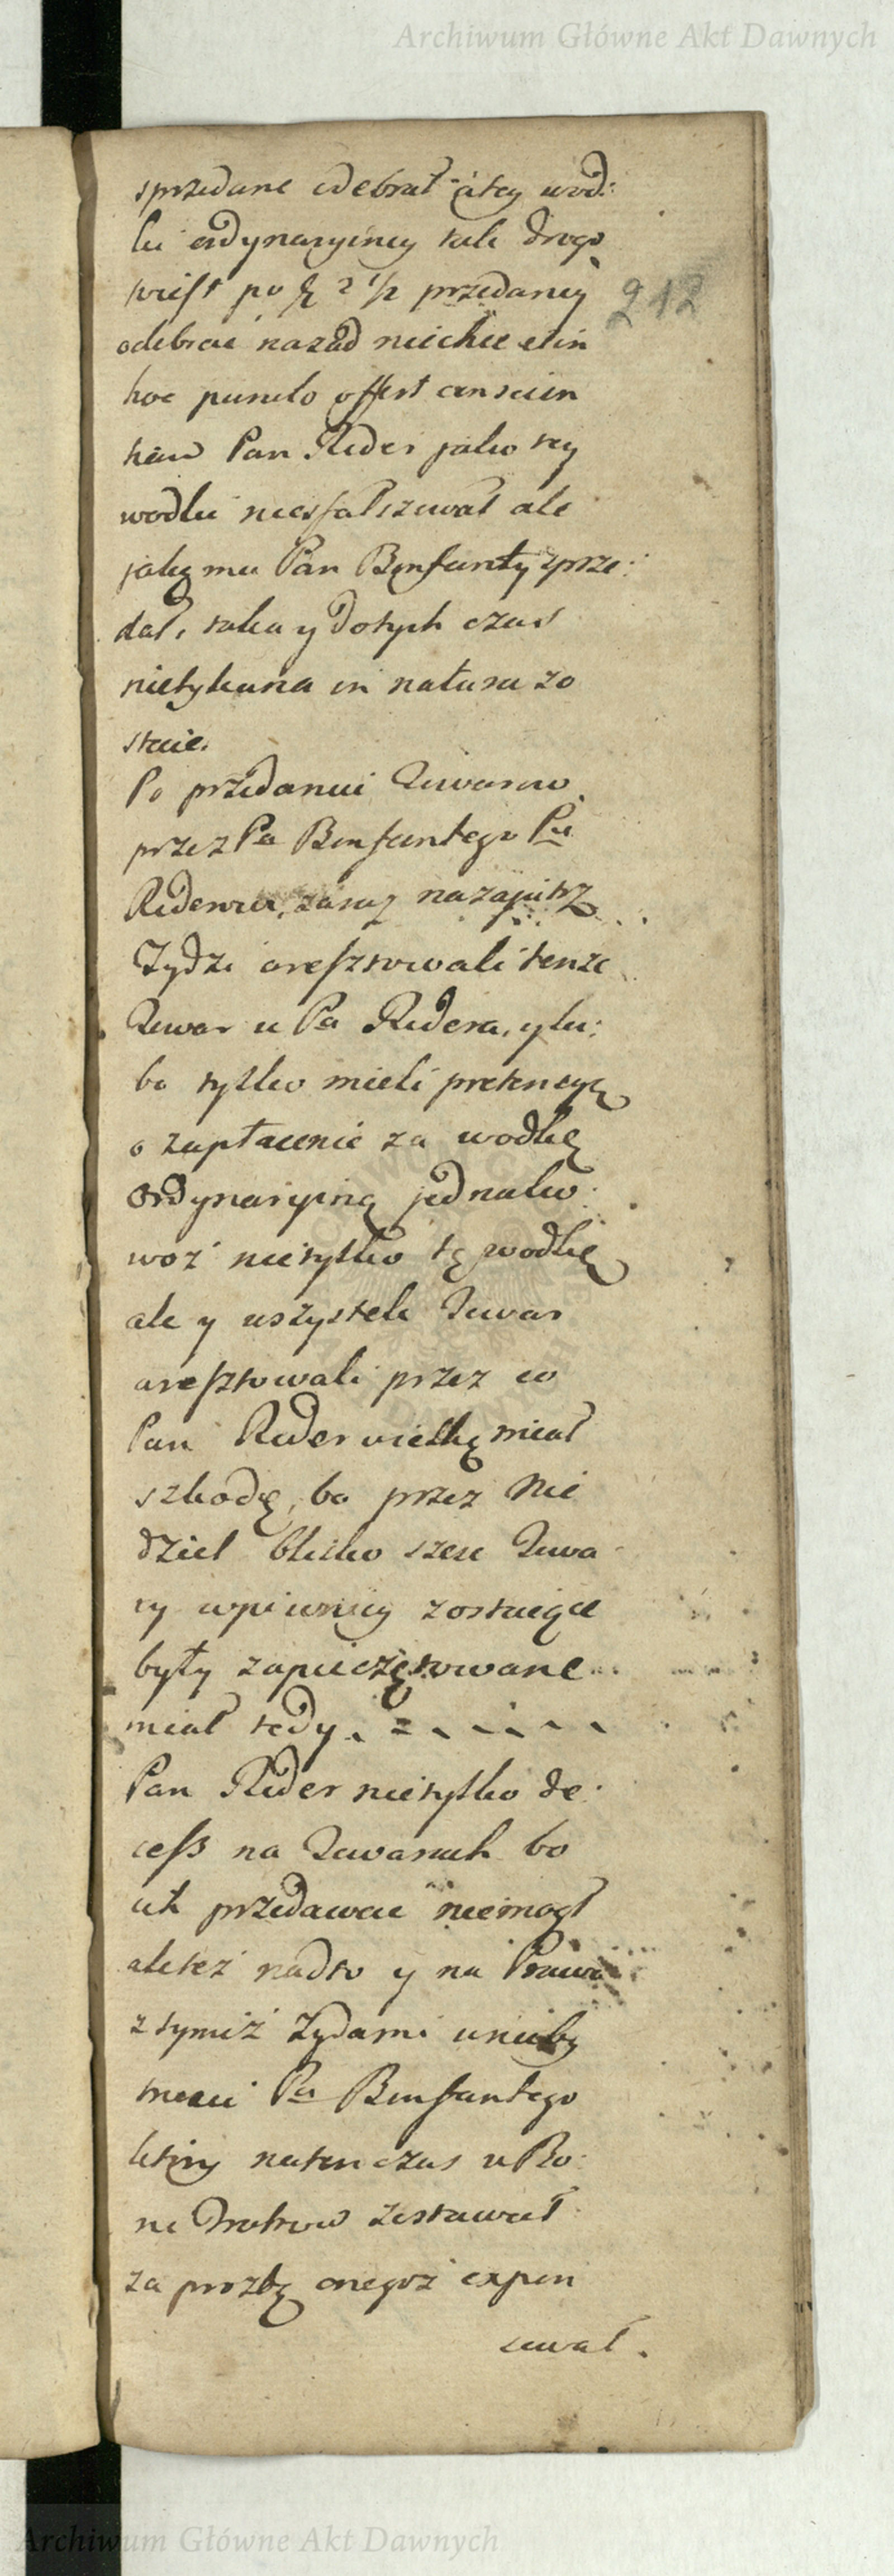 Archiwum Główne Akt Dawnych
212
sprzedane odebrał a tey wod:
ki ordynaryiney tak drogo
po 2 1/2 przedaney
odebrać nazad niechce et in
hoc puncto offert conscien
tiam Pan Rider jako tey
wodki niesfalszował ale
jaką mu Pan Bonfanty zprze:
dał, taka y dotych czas
nietykana in natura zo
staie.
Po przedaniu Towarow
przez Pa Bonfantego Pu
Riderowi, zaraz nazajutrz
Żydzi aresztowali tenże
Towar u Pa Ridera, y lu:
bo tylko mieli pretensyą
o zapłacenie za wodkę
Ordynaryiną jednako
woż nietylko tę wodkę
ale y wszystek Towar
aresztowali przez co
Pan Rider wielką miał
szkodę, bo przez Nie
dziel blisko szesc Towa
ry w piwnicy zostaiące
były zapieczętowane
miał tedy
Pan Rider nietylko de
cess na Towarach bo
ich przedawać niemogł
ale też nadto y na Prawo
z tymiż Żydami w nieby
tności Pa Bonfantego
ktory natenczas
zostawał
za prozbą onegoż expen
sował.
Archiwum Główne Akt Dawnych